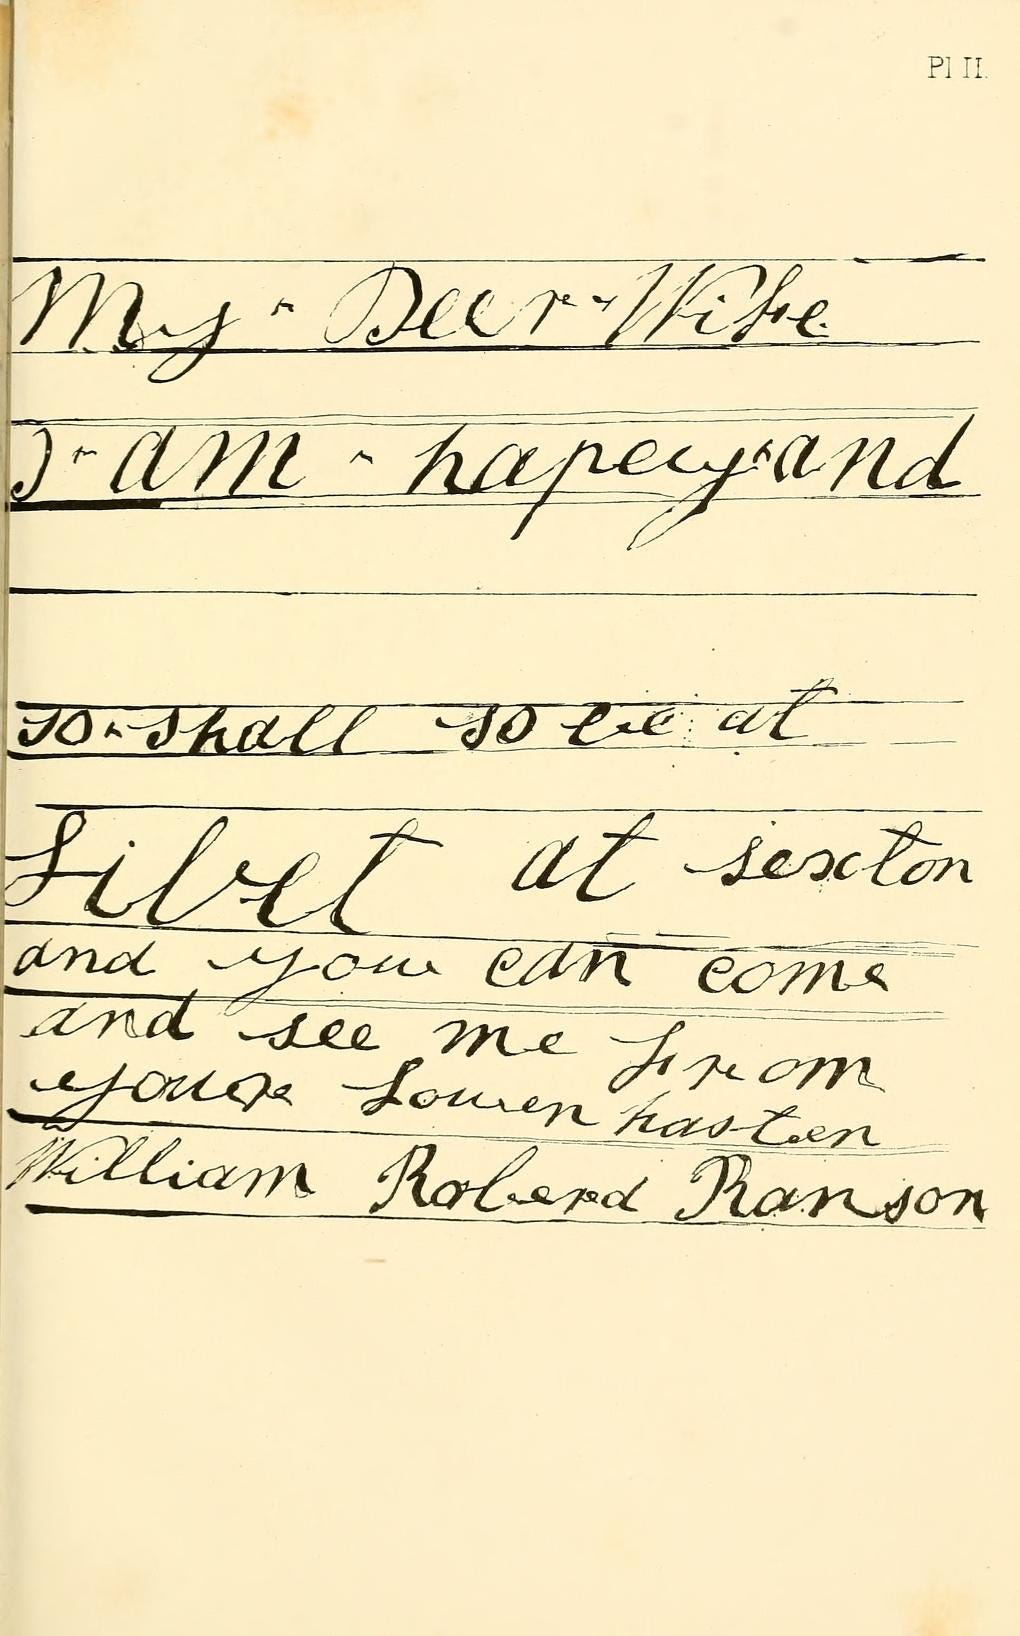 Pl II.
My - Deer - Wife
I - am - hapey and
so - shall so be at
Libet at sexton
and you can come
and see me from
youre Louen hasten
William Roberd Ranson